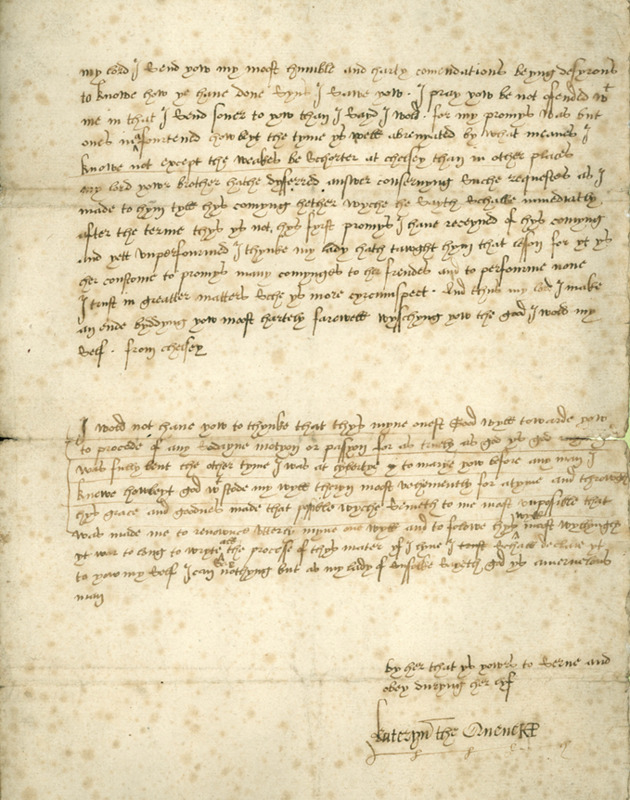 my lord I send yow my most humble and harty comendations beyng desyrous
to knowe how ye have done synt I sawe yow . I pray yow be not ofended wt
me in that I send soner to yow than I sayd I wold . for my promys was but
ones in fourtened howbeyt the tyme ys well abrevyated by what meanes I
knowe not except the weakes be schorter at chelsey than in other places
my lord yowr brother hathe dyfferred answer consernyng suche requestes as I
made to hym tyll hys comyng hether wyche he sayth schalbe immediatly
after the terme thys ys not hys fyrst promys I have receyved of hys comyng
and yett unperfourmed I thynke my lady hath tawght hym that lesson for yt ys
her coustome to promys many comynges to her frendes and to performe none
I trust in greatter matters sche ys more cyrcumspect . And thus my lord I make
an ende byddyng yow most hartely farewell wysschyng yow the good I wold my
self . from chelsey
I wold not have yow to thynke that thys myne onest good wyll towarde yow
to procede of any sodayne motyon or passyon for as truely as god ys god my
was fully bent the other tyme I was at lybertye to marye yow before any man I
knowe howbeyt god wtstode my wyll therin most vehemently for a tyme and throwgh
hys grace and goodnes made that possible wyche semeth to me most unpossible that
was made me to renounce utterly myne owne wyll and to folowe hys wyll most wyllyngly
yt war to long to wryte all the processe of thys mater yf I lyve I trust I schall declare yt
to yow my self I can say nothyng but as my lady of suffolke sayeth god ys a mervelous
man
by her that ys yowrs to serve and
obey duryng her lyf
Kateryn the Quene KP